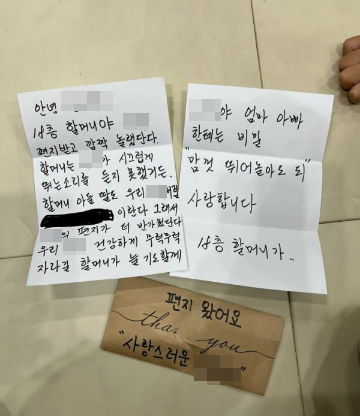 안녕
16층 할머니야
편지받고 깜짝 놀랬단다.
할머니는 가 시끄럽게
뛰는소리를 듣지 못했거든.
할머니 아들 딸도 우리
이란다 그래서
의 편지가 더 반가웠단다
우리 건강하게 무럭무럭
자라길 할머니가 늘 기도할께
야 엄마 아빠
한테는 비밀
"맘껏 뛰어놀아도 되"
사랑합니다
16층 할머니가..
편지 왔어요
thank you
"사랑스러운 "